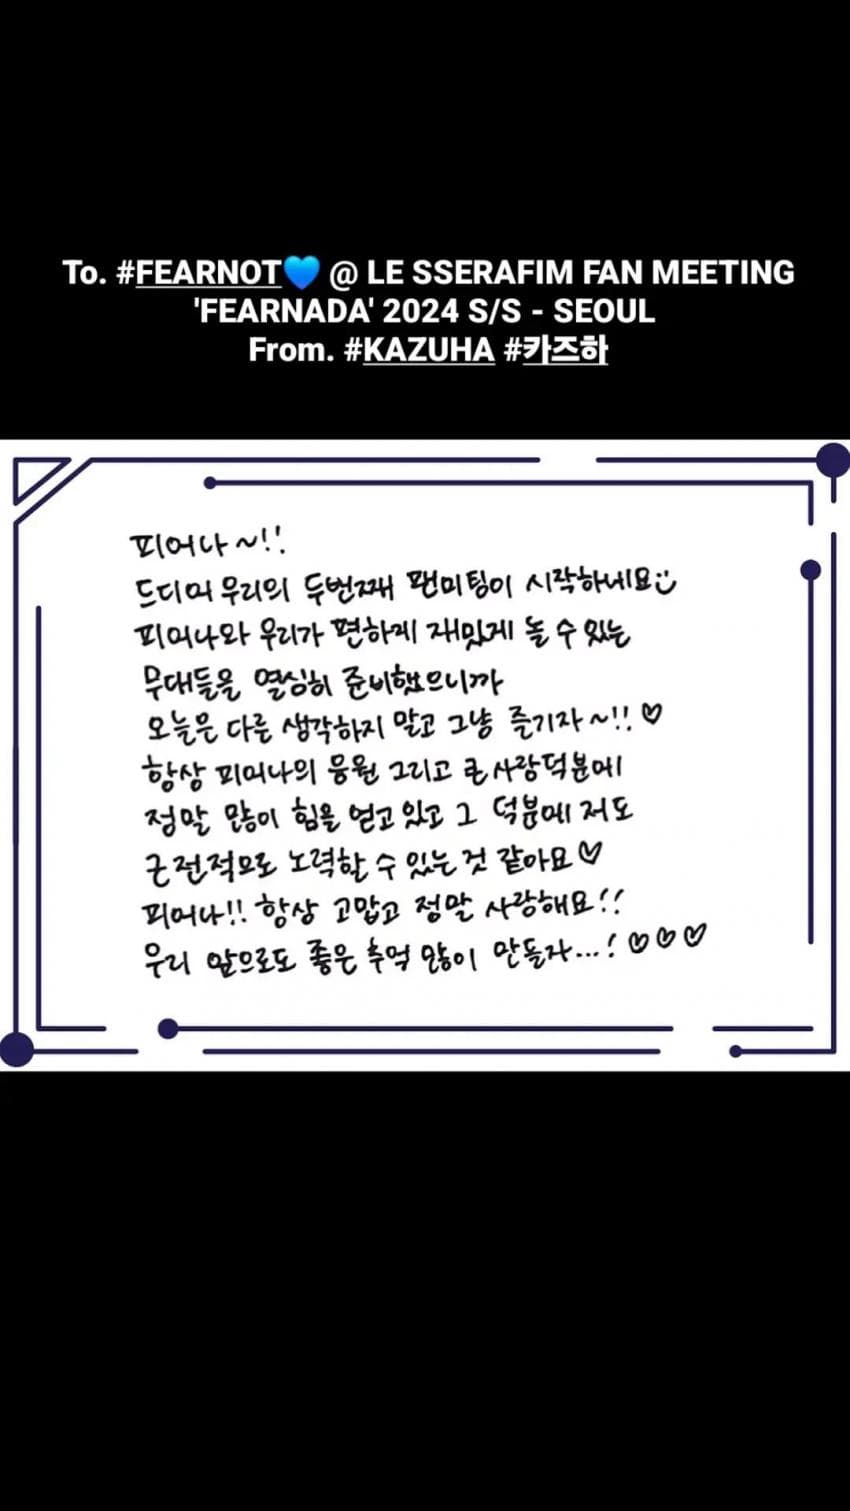 To. #FEARNOT💙 @ LE SSERAFIM FAN MEETING
'FEARNADA' 2024 S/S - SEOUL
From. #KAZUHA #카즈하
피어나~!!
드디어 우리의 두번째 팬미팅이 시작하네요
피어나와 우리가 편하게 재밌게 놀 수 있는
무대들을 열심히 준비했으니까
오늘은 다른 생각하지 말고 그냥 즐기자~!!♡
항상 피어나의 응원 그리고 큰 사랑덕분에
정말 많이 힘을 얻고있고 그 덕분에 저도
긍전적으로 노력할 수 있는 것 같아요♡
피어나!! 항상 고맙고 정말 사랑해요!!
우리 앞으로도 좋은 추억 많이 만들자...!♡♡♡